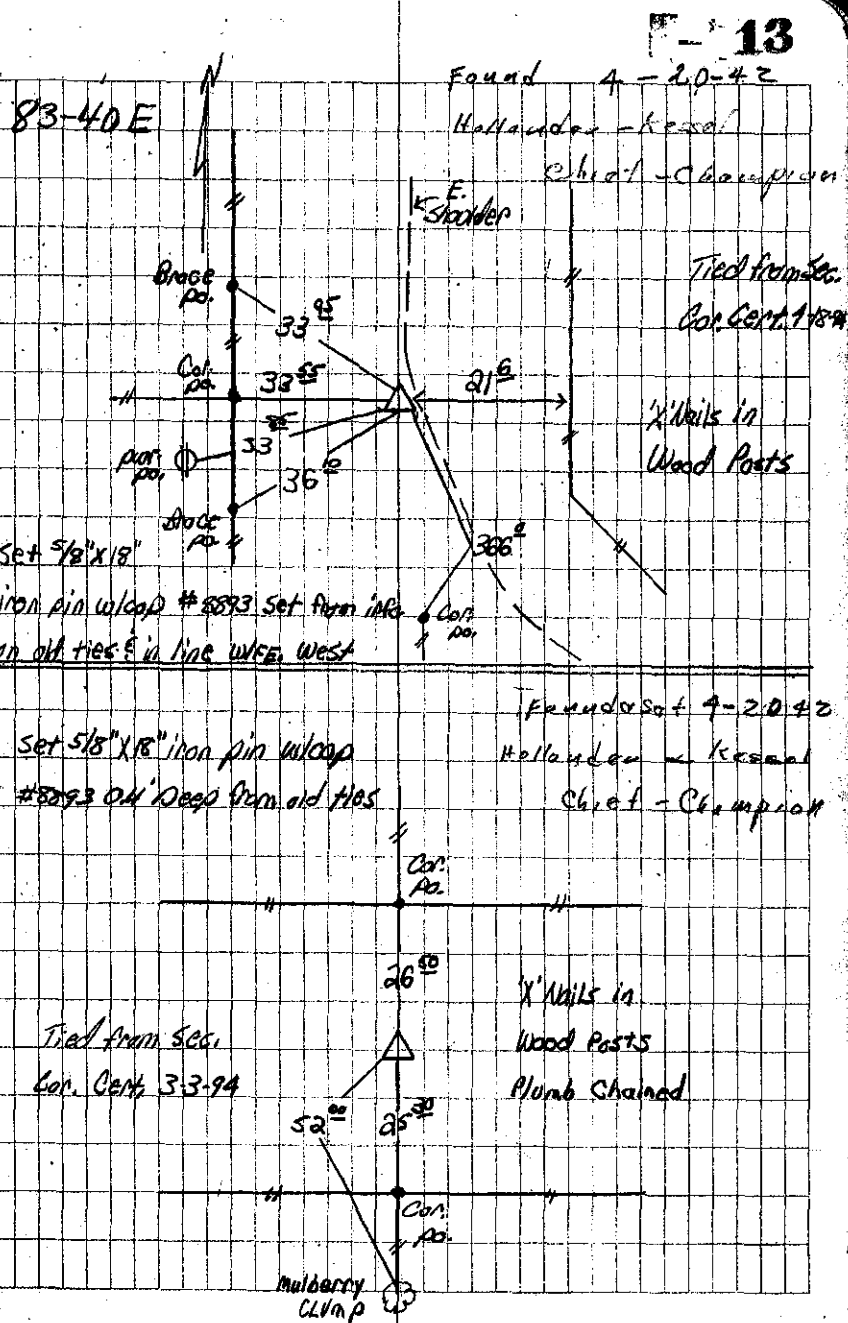 13
83-40E
N
Found 4-20-42
Hollander - Kessel
Chief - Champion
E. Shoulder
Tied from Sec.
Cor. Cert.
Brace po.
33 95
Cor. po.
33 55
21 6
'X' Nails in
Wood Posts
pwr. po.
33
36 10
Brace po.
366
Cor. po.
Set 5/8"X18"
iron pin w/cap #8893 set from info
old ties & in line w/FE. West
Found & Set 4-20-42
Hollander - Kessel
Chief - Champion
Set 5/8"X18" iron pin w/cap
#8893 0.4' Deep from old ties
Cor. po.
26 50
'X' Nails in
Wood Posts
Plumb Chained
Tied from Sec.
Cor. Cert. 3-3-94
52 00
25
Cor. po.
Mulberry
CLUmp